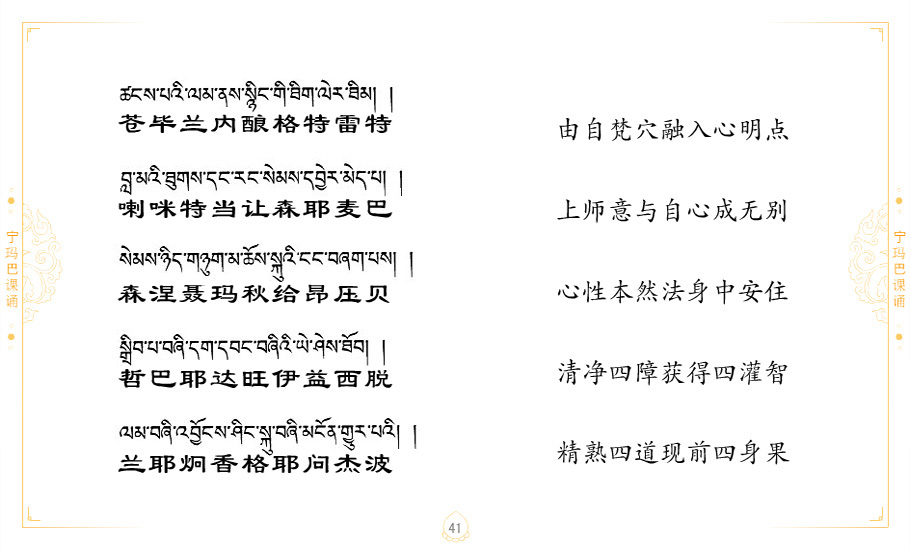 ཚངས་པའི་ལམ་ནས་སྙིང་གི་ཐིག་ལེར་ཐིམ། །
苍毕兰内酿格特雷特
由自梵穴融入心明点
བླ་མའི་ཐུགས་དང་རང་སེམས་དབྱེར་མེད་པ། །
喇咪特当让森耶麦巴
上师意与自心成无别
སེམས་ཉིད་གཉུག་མ་ཆོས་སྐུའི་ངང་བཞག་པས། །
森涅聂玛秋给昂压贝
心性本然法身中安住
སྒྲིབ་པ་བཞི་དག་དབང་བཞིའི་ཡེ་ཤེས་ཐོབ། །
哲巴耶达旺伊益西脱
清净四障获得四灌智
ལམ་བཞི་འབྱོངས་ཤིང་སྐུ་བཞི་མངོན་གྱུར་པའི། །
兰耶炯香格耶问杰波
精熟四道现前四身果
宁玛巴课诵
宁玛巴课诵
41